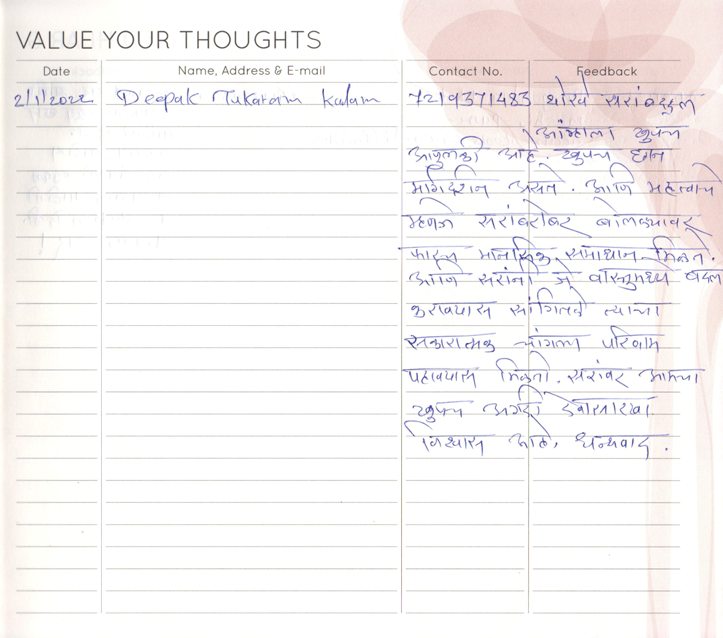 VALUE YOUR THOUGHTS
Date Name, Address & E-mail Contact No. Feedback
2/1/2022 Deepak Tukaram Kadam 7219371483 थोरवे सरांबद्दल
आंम्हाला खुपच
आपुलकी आहे. खुपच छान
मार्गदर्शन असते. आणि महत्वाचे
म्हणजे सरांबरोबर बोलल्यावर
फारच मानसिक समाधान मिळते.
आणि सरांनी जे वास्तुमध्ये बदल
करावयास सांगितले त्याचा
सकारात्मक चांगला परिणाम
पहावयास मिळतो. सरांवर आमचा
खुपच अगदी देवासारखा
विश्वास आहे, धन्यवाद.